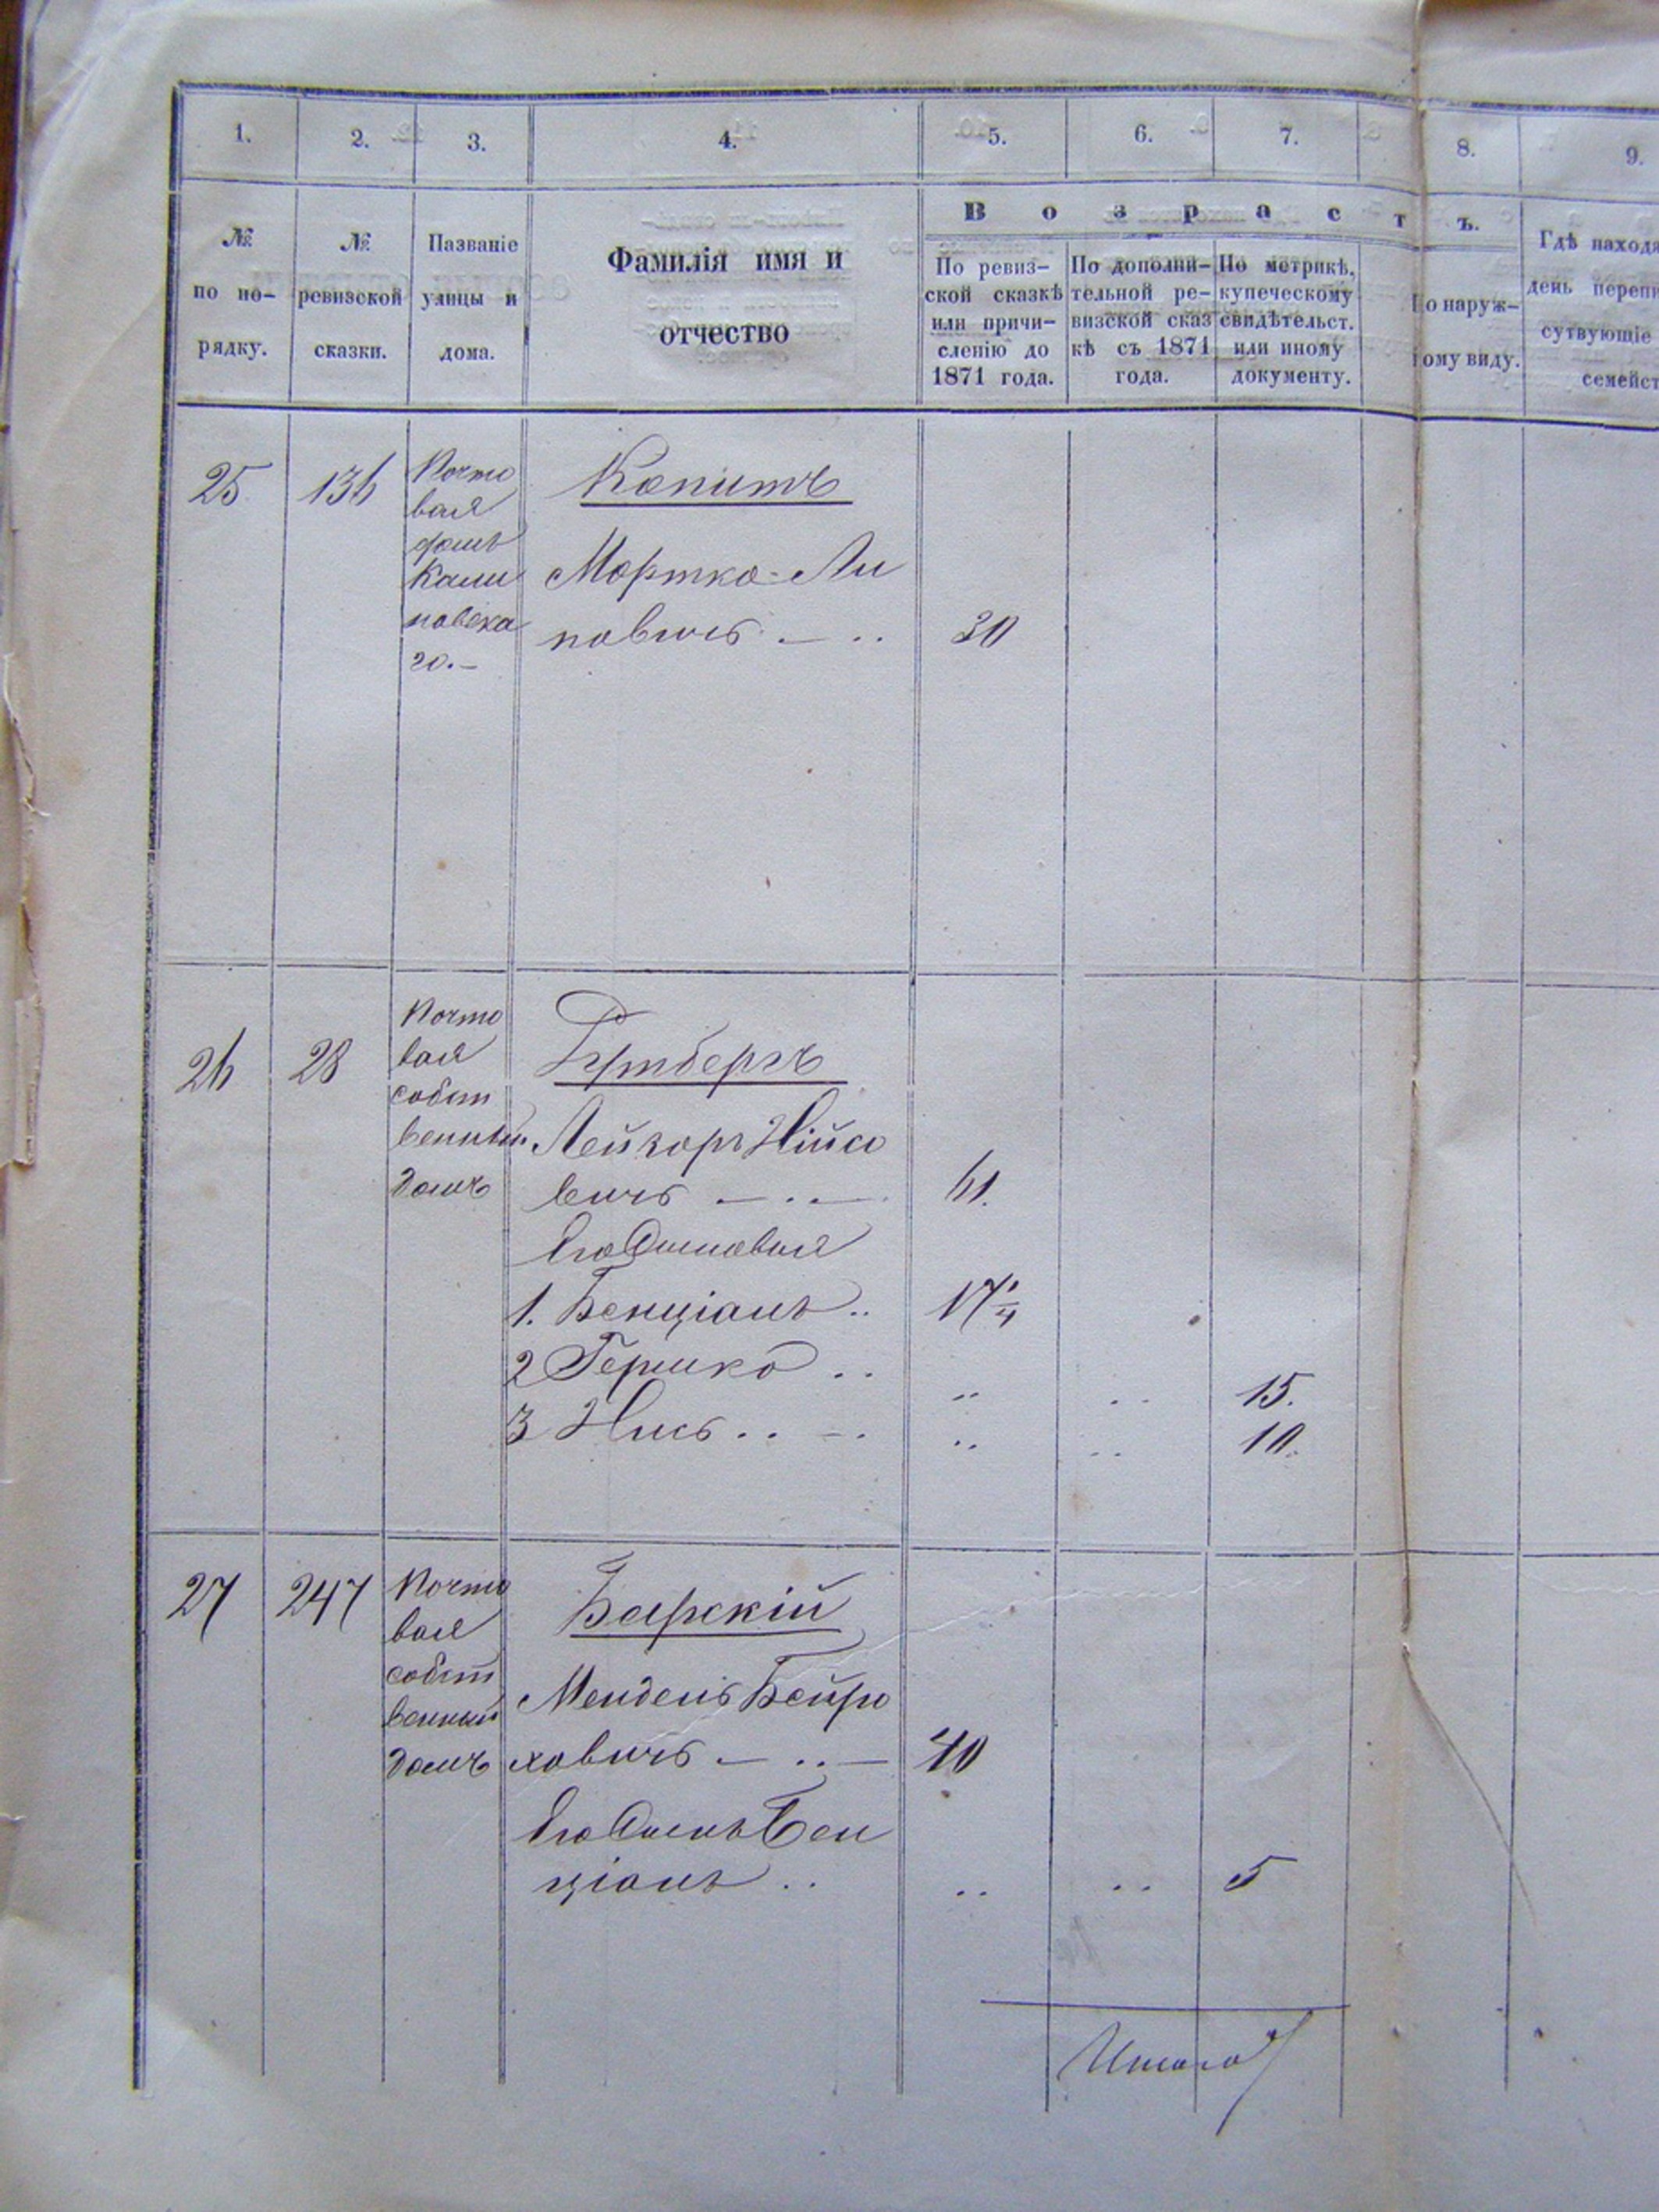 1. 2. 3. 4. 5. 6. 7. 8. 9.
В о з р а с т ъ.
№ по по- рядку.
№ ревизской сказки.
Названіе улицы и дома.
Фамилія имя и
отчество
По ревиз-
ской сказкѣ
или причи-
сленію до
1871 года.
По дополни-
тельной ре-
визской сказ
кѣ съ 1871
года.
По метрикѣ,
купеческому
свидѣтельст.
или иному
документу.
По наруж-
ному виду.
Гдѣ находя
день перепи
сутвующіе
семейст
25 136
Почто
вая
домъ
Кали
новска
го.-
Копитъ
Мортко-Ли
повичъ 30
26 28
Почто
вая
собст
венный
домъ
Гутбергъ
Лейзоръ Нійсо
вичъ 61.
Его Сыновья
1. Бенціанъ 17 1/4
2 Гершко 15.
3 Нисъ 10.
27 247
Почто
вая
собст
венный
домъ
Барскій
Мендель Бейро
ховичъ 40
Его Сынъ Бен
ціанъ 5
Итого